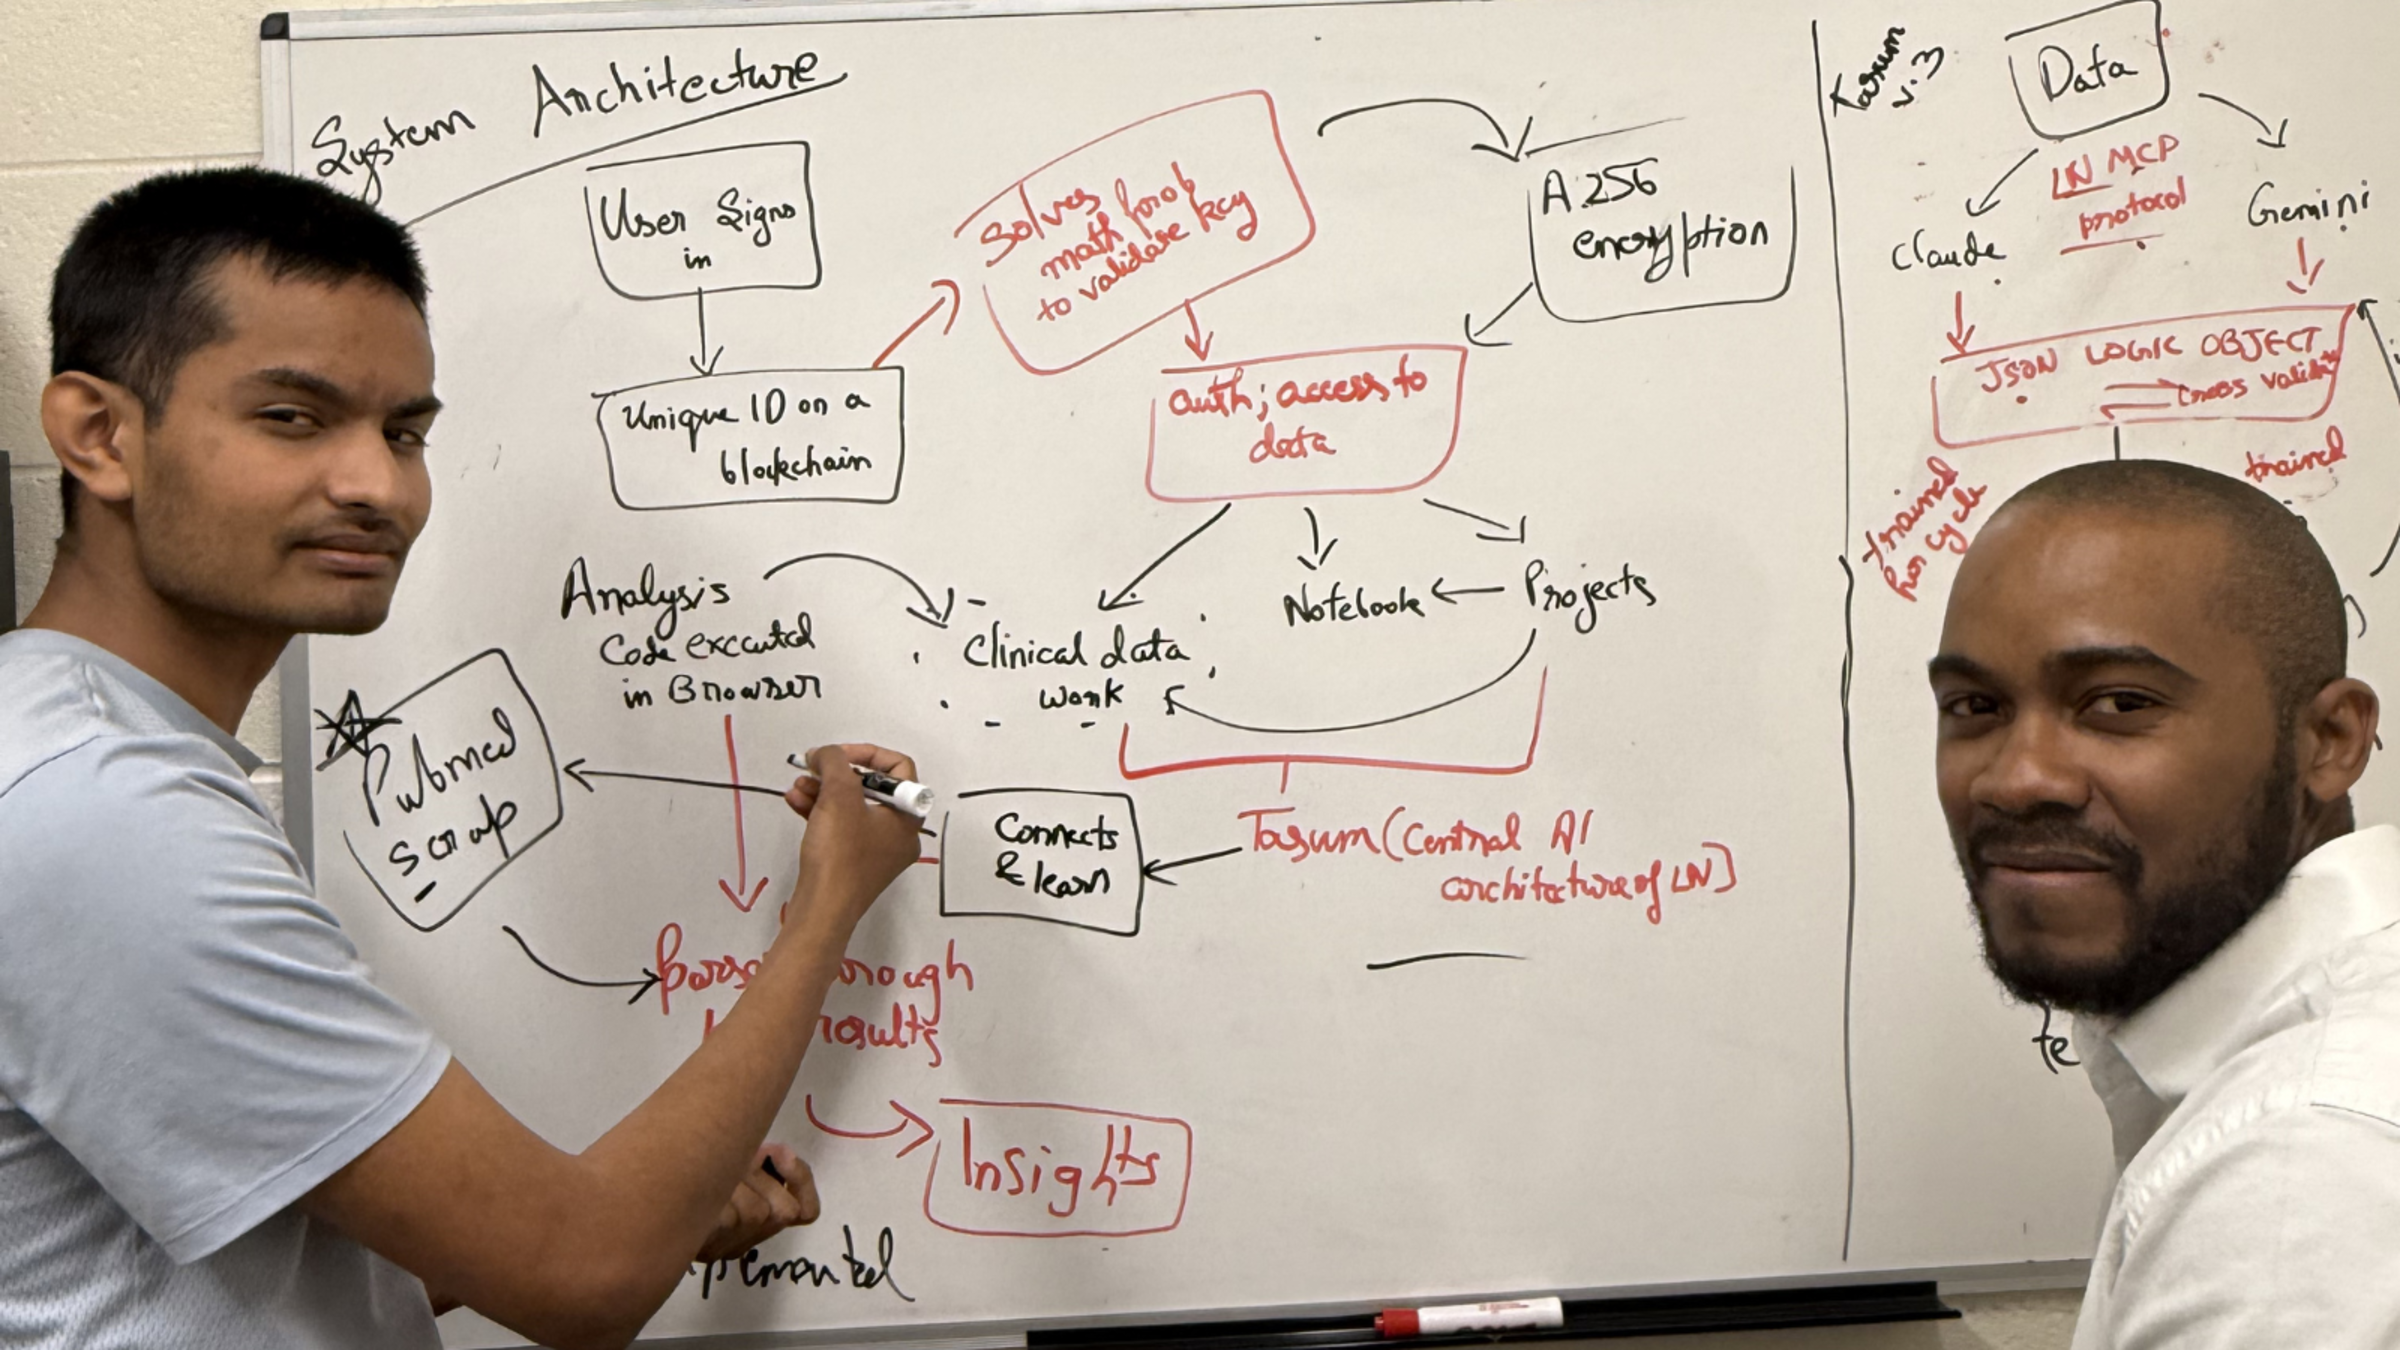 System Architecture
User Signs
in
Unique ID on a
blockchain
Solves
math prob
to validate key
A.256
encryption
auth; access to
data
Analysis
Code executed
in Browser
Clinical data
work
Notebook
Projects
Pubmed
scrap
Connects
& learn
Tasum (Central AI
architecture of LN)
results
Insights
v.3
Data
LN MCP
protocol
Claude
Gemini
JSON LOGIC OBJECT
trained
trained